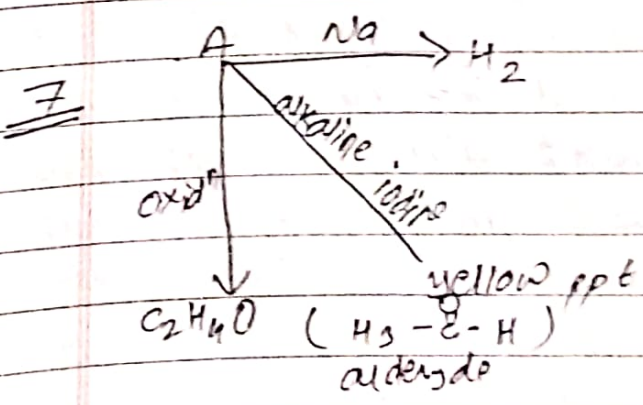 A Na → H2
7
alkaline iodine
oxidn
yellow ppt
C2H4O ( H3 - C - H )
O
aldehyde